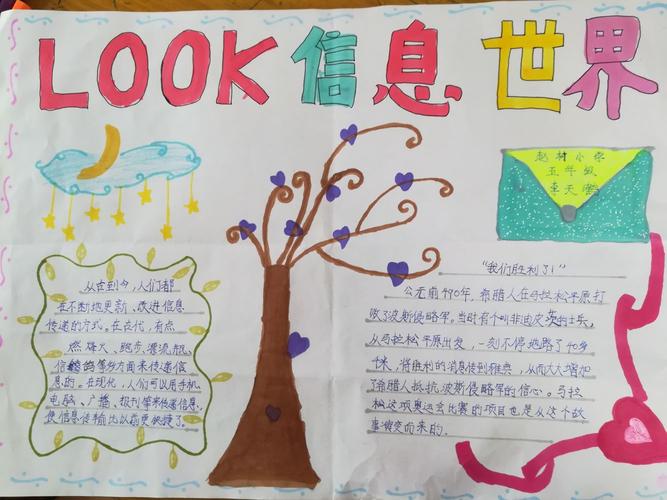 LOOK 信息世界
赵村小学
五年级
李天
从古到今，人们都
在不断地更新、改进信息
传递的方式。在古代，有点
燃烽火、跑步、漂流瓶、
信鸽等多方面来传递信
息的。在现代，人们可以用手机、
电脑、广播、报刊等来传递信息，
使信息传输比以前更快捷了。
“我们胜利了！”
公元前490年，希腊人在马拉松平原打
败了波斯侵略军。当时有个叫菲迪皮茨的士兵，
从马拉松平原出发，一刻不停地跑了40多
千米，将胜利的消息传到雅典，从而大大增加
了希腊人抵抗波斯侵略军的信心。马拉
松这项奥运会比赛的项目也是从这个故
事演变而来的。